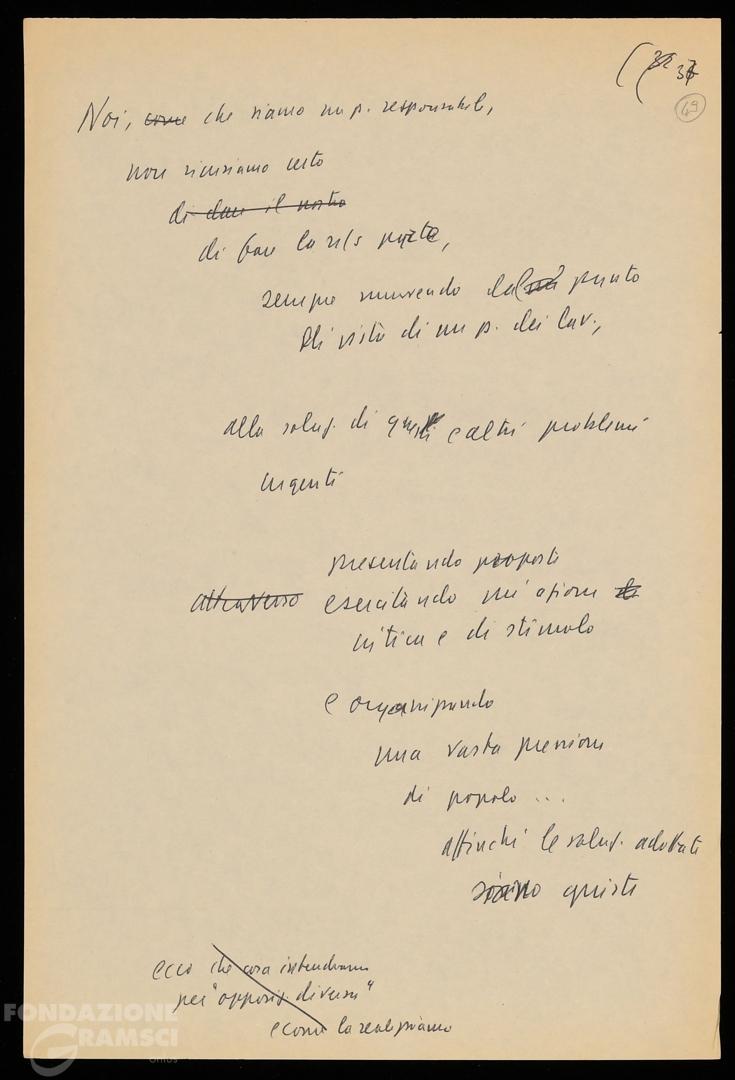 37
49
Noi, come che siamo un p. responsabile,
non ricusiamo certo
di dare il nostro
di fare la ns parte,
sempre muovendo dal punto
di vista di un p. dei lav.,
alla soluz. di questi e altri problemi
urgenti
presentando proposte
attraverso esercitando un'azione
critica e di stimolo
e organizzando
una vasta pressione
di popolo ...
affinché le soluz. adottate
siano giuste
ecco che cosa intendiamo
per "opposiz. diversa"
e come la realizziamo
FONDAZIONE
GRAMSCI
onlus